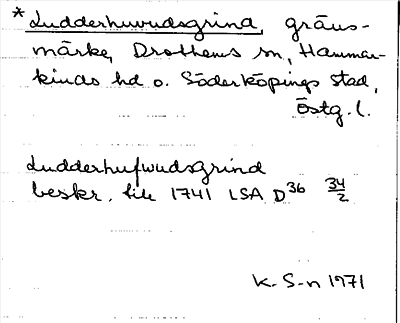 * Ludderhuvudsgrind, gräns-
märke, Drothems sn, Hammar-
kinds hd o. Söderköpings stad,
Östg. l.
Ludderhufwudsgrind
beskr. till 1741 LSA D36 34/2
K. S-n 1971